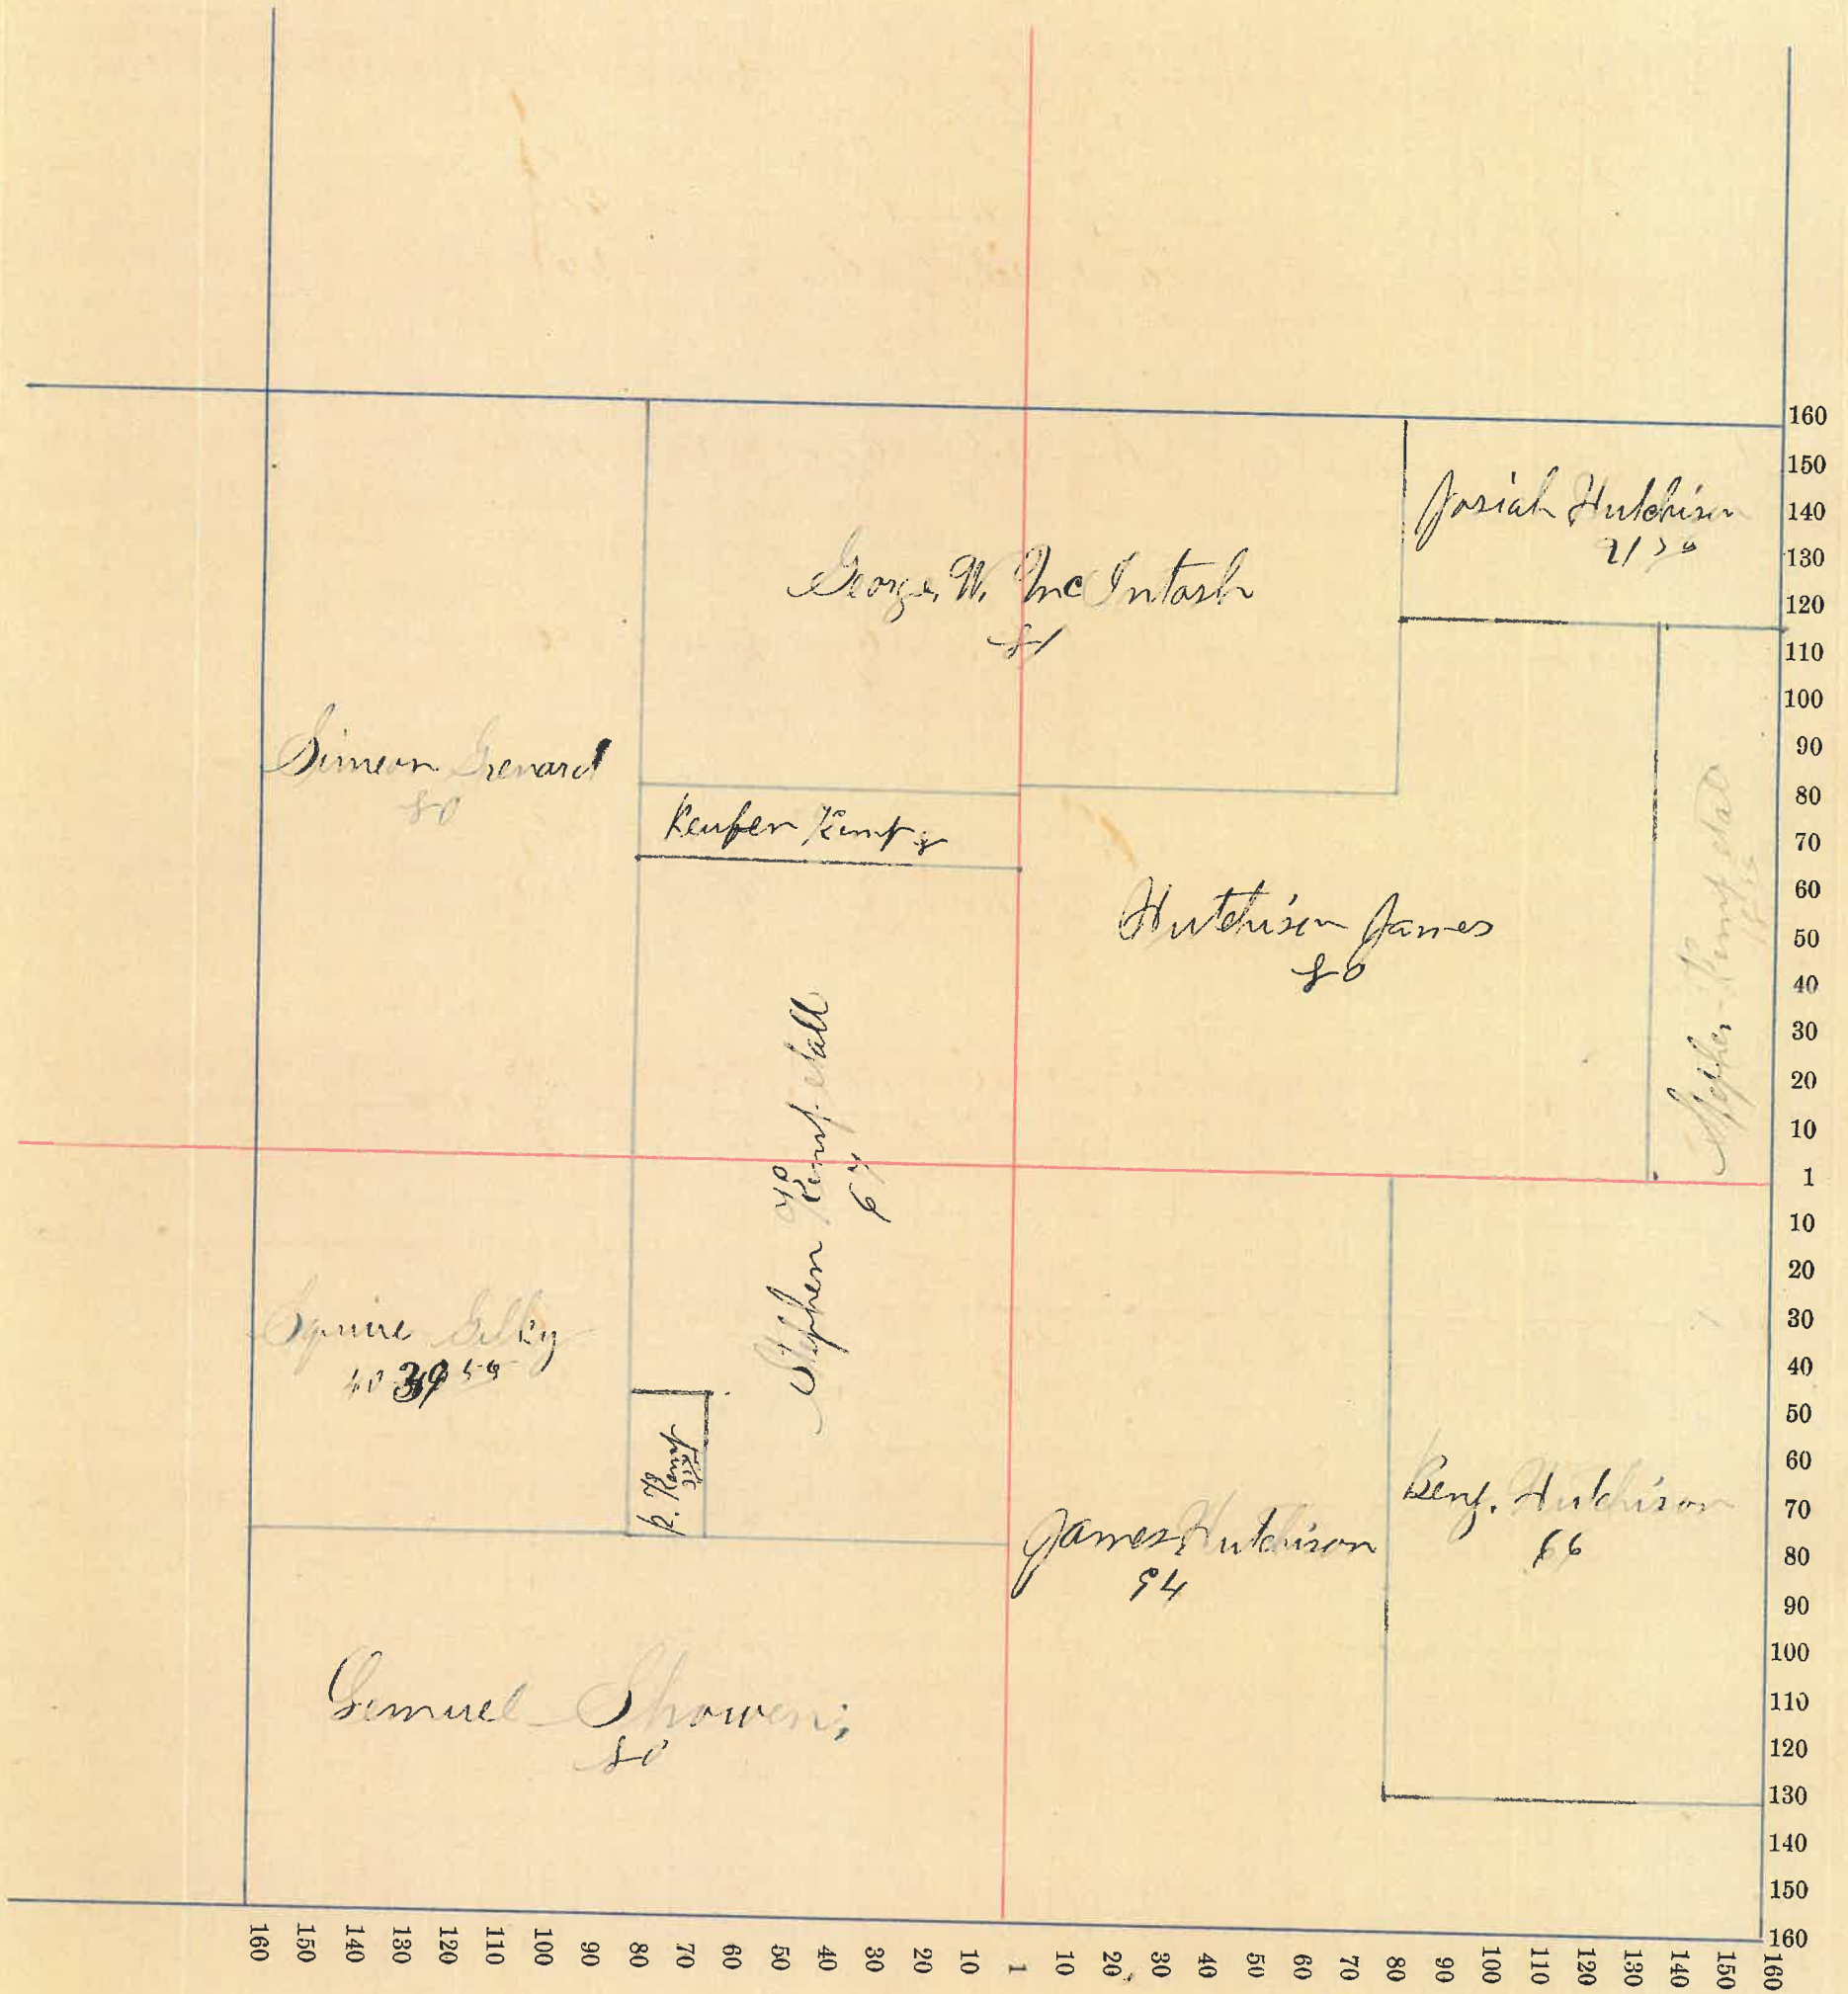 Josiah Hutchison
George. W. McIntosh
81
Simeon Grenard
80
Reuben Kemp 8
Hutchison James
80
Stephen Kemp etal
Stephen Kemp. etall
67
Squire Selby
40 39
R. Kemp
James Hutchison
94
Benj. Hutchison
66
Lemuel Showen;
80
160
150
140
130
120
110
100
90
80
70
60
50
40
30
20
10
1
10
20
30
40
50
60
70
80
90
100
110
120
130
140
150
160
160
150
140
130
120
110
100
90
80
70
60
50
40
30
20
10
1
10
20
30
40
50
60
70
80
90
100
110
120
130
140
150
160